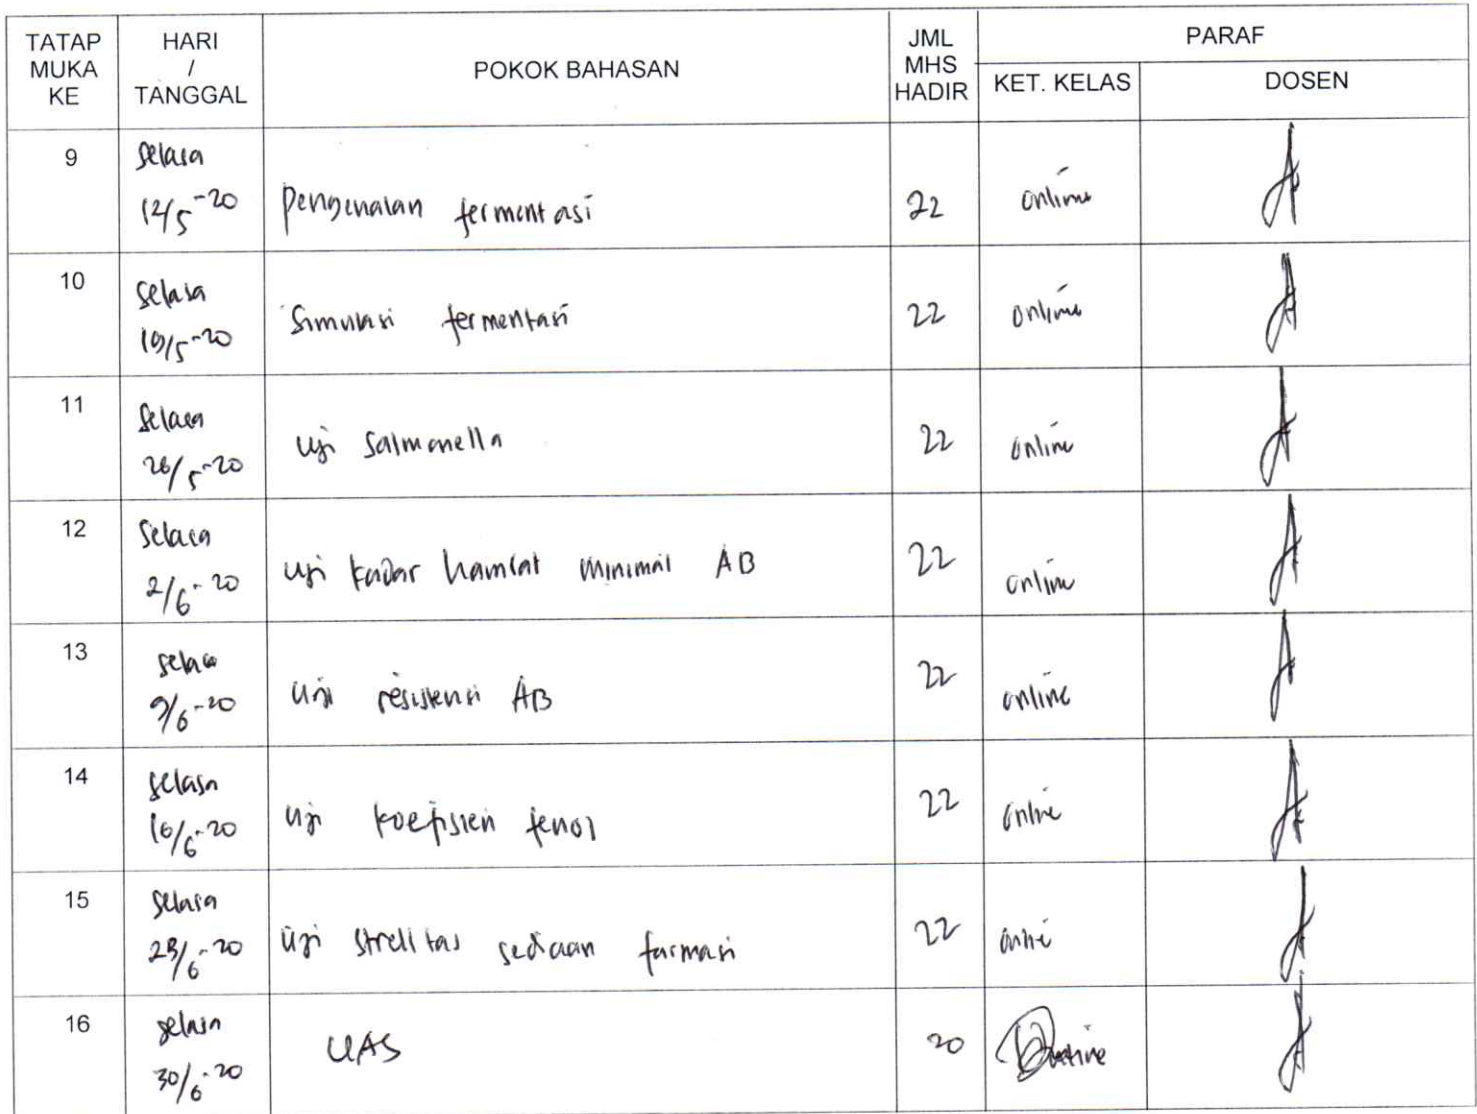 TATAP MUKA KE HARI / TANGGAL POKOK BAHASAN JML MHS HADIR PARAF
KET. KELAS DOSEN
9 Selasa 12/5-20 Pengenalan fermentasi 22 online
10 Selasa 19/5-20 Simulasi fermentasi 22 online
11 Selasa 26/5-20 uji Salmonella 22 online
12 Selasa 2/6-20 uji kadar hambat minimal AB 22 online
13 selasa 9/6-20 uji resistensi AB 22 online
14 selasa 16/6-20 uji koefisien fenol 22 online
15 Selasa 23/6-20 uji strelitas sediaan farmasi 22 online
16 selasa 30/6-20 UAS 20